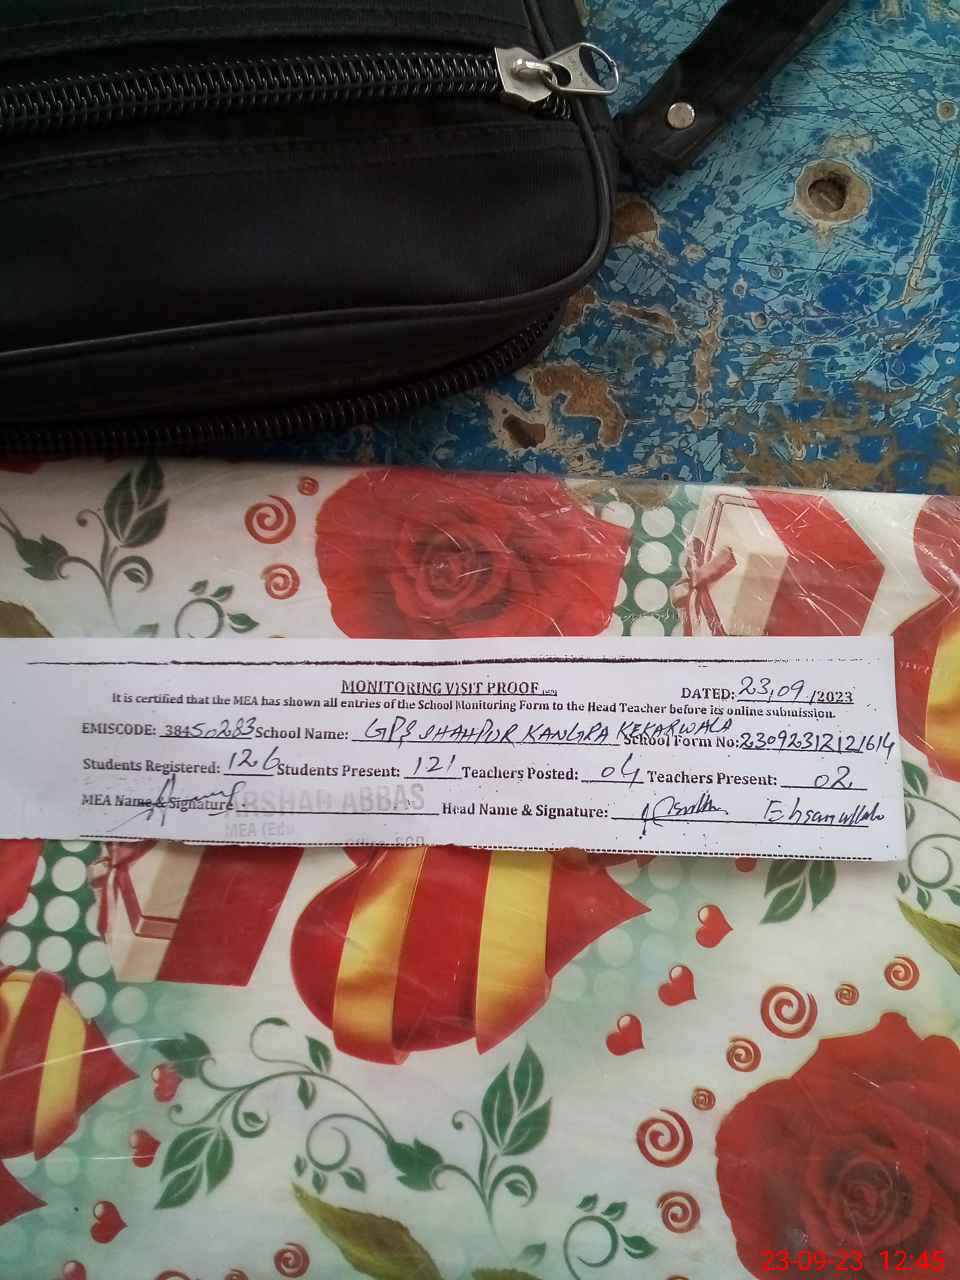 MONITORING VISIT PROOF
DATED: 23,09/2023
It is certified that the MEA has shown all entries of the School Monitoring Form to the Head Teacher before its online submission.
EMISCODE: 38450283 School Name: GPS SHAHPUR KANGRA KEKARWALA
School Form No: 23092312121614
Students Registered: 126 Students Present: 121 Teachers Posted: 04 Teachers Present: 02
MEA Name & Signature ARSHAD ABBAS Head Name & Signature: Ehsanullah
MEA (Edu.
23-09-23 12:45